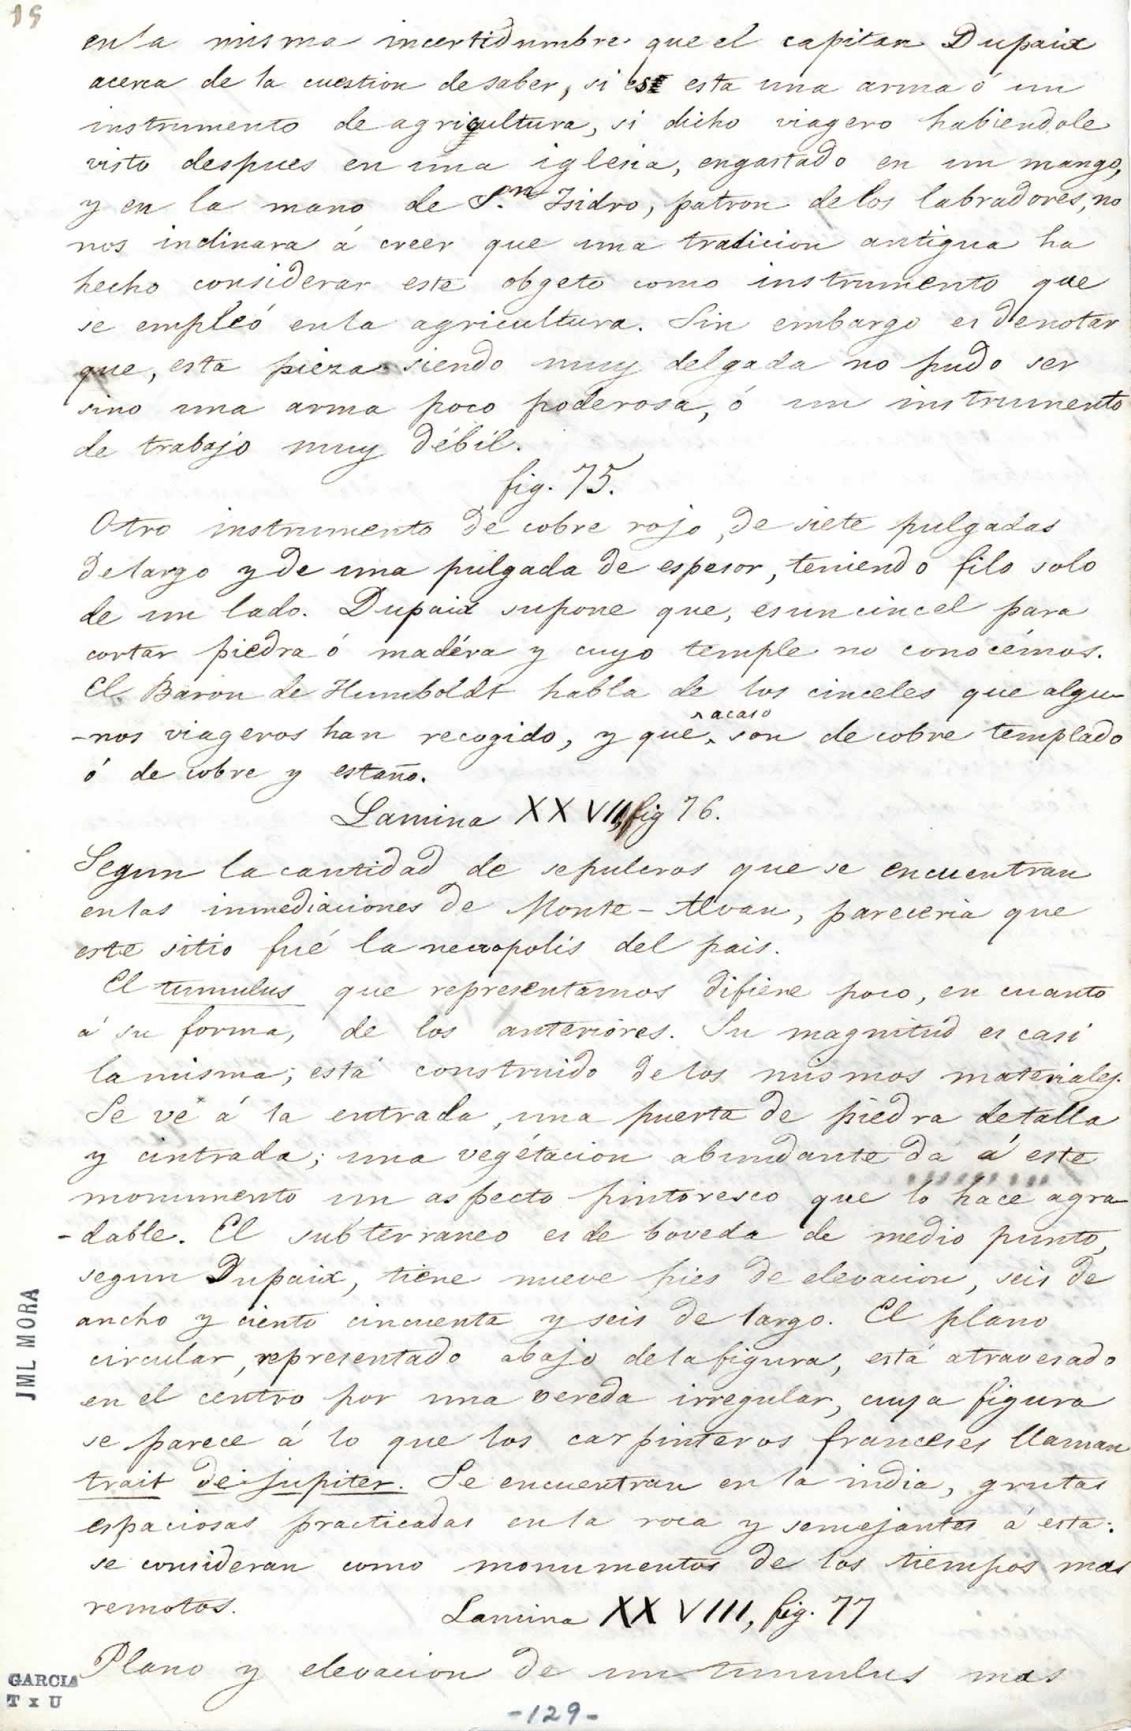 15
en la misma incertidumbre que el capitan Dupaix
acerca de la cuestion de saber, si es esta una arma ó un
instrumento de agricultura, si dicho viagero habiendole
visto despues en una iglesia, engastado en un mango,
y en la mano de S.n Isidro, patron de los labradores, no
nos inclinara á creer que una tradicion antigua ha
hecho considerar este obgeto como instrumento que
se empleó en la agricultura. Sin embargo es denotar
que, esta pieza siendo muy delgada no pudo ser
sino una arma poco poderosa, ó un instrumento
de trabajo muy débil.
fig. 75.
Otro instrumento de cobre rojo, de siete pulgadas
de largo y de una pulgada de espesor, teniendo filo solo
de un lado. Dupaix supone que, es un cincel para
cortar piedra ó madéra y cuyo temple no conocémos.
El Baron de Humboldt habla de los cinceles que algu-
-nos viageros han recogido, y que acaso son de cobre templado
ó de cobre y estaño.
Lamina XXVII, fig 76.
Segun la cantidad de sepulcros que se encuentran
en las inmediaciones de Monte-Alvan, pareceria que
este sitio fué la necropolis del pais.
El tumulus que representamos difiere poco, en cuanto
á su forma, de los anterióres. Su magnitud es casi
la misma; está construido de los mismos materiales.
Se vé á la entrada, una puerta de piedra de talla
y cintrada; una vegétacion abundante da á este
monumento un aspecto pintoresco que lo hace agra-
-dable. El subterraneo es de boveda de medio punto,
segun Dupaix, tiene nueve pies de elevacion, seis de
ancho y ciento cincuenta y seis de largo. El plano
circular, representado abajo de la figura, está atravesado
en el centro por una vereda irregular, cuya figura
se parece á lo que los carpinteros franceses llaman
trait de jupiter. Se encuentran en la india, grutas
espaciosas practicadas en la roca y semejantes á esta:
se consideran como monumentos de los tiempos mas
remotos. Lamina XXVIII, fig. 77
Plano y elevacion de un tumulus mas
JML MORA
GARCIA
T x U
-129-